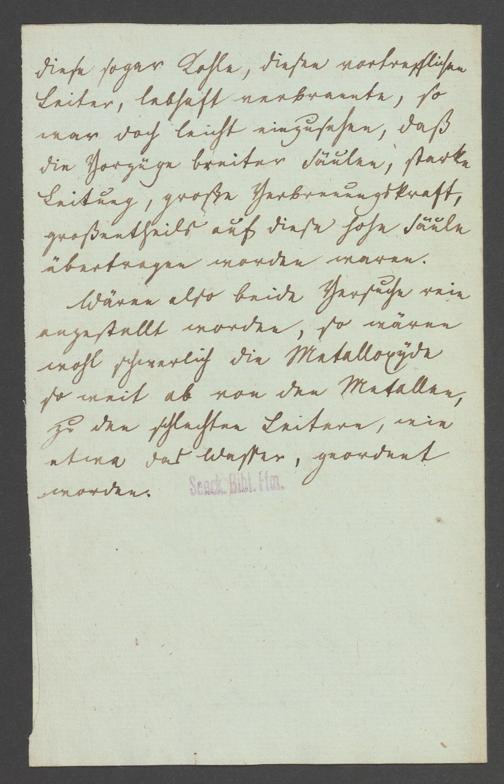 diese sogar Kohle, diesen vortrefflichen
Leiter, lebhaft verbrannte, so
war doch leicht einzusehen, daß
die Vorzüge breiter Säulen, starke
Leitung, große Verbrennungskraft,
großentheils auf diese hohe Säule
übertragen worden waren.
Wären also beide Versuche rein
angestellt worden, so wären
wohl schwerlich die Metalloxÿde
so weit ab von den Metallen,
zu den schlechten Leitern, wie
etwa das Wasser, geordnet
worden.
Senck. Bibl. Ffm.